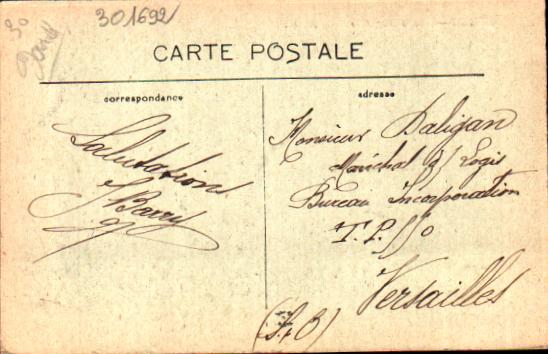 301692
CARTE POSTALE
correspondance
adresse
Salutations
JBarry
Monsieur Daligan
Maréchal d/ Logis
Bureau Incorporation
T.P.
Versailles
(S.&O)